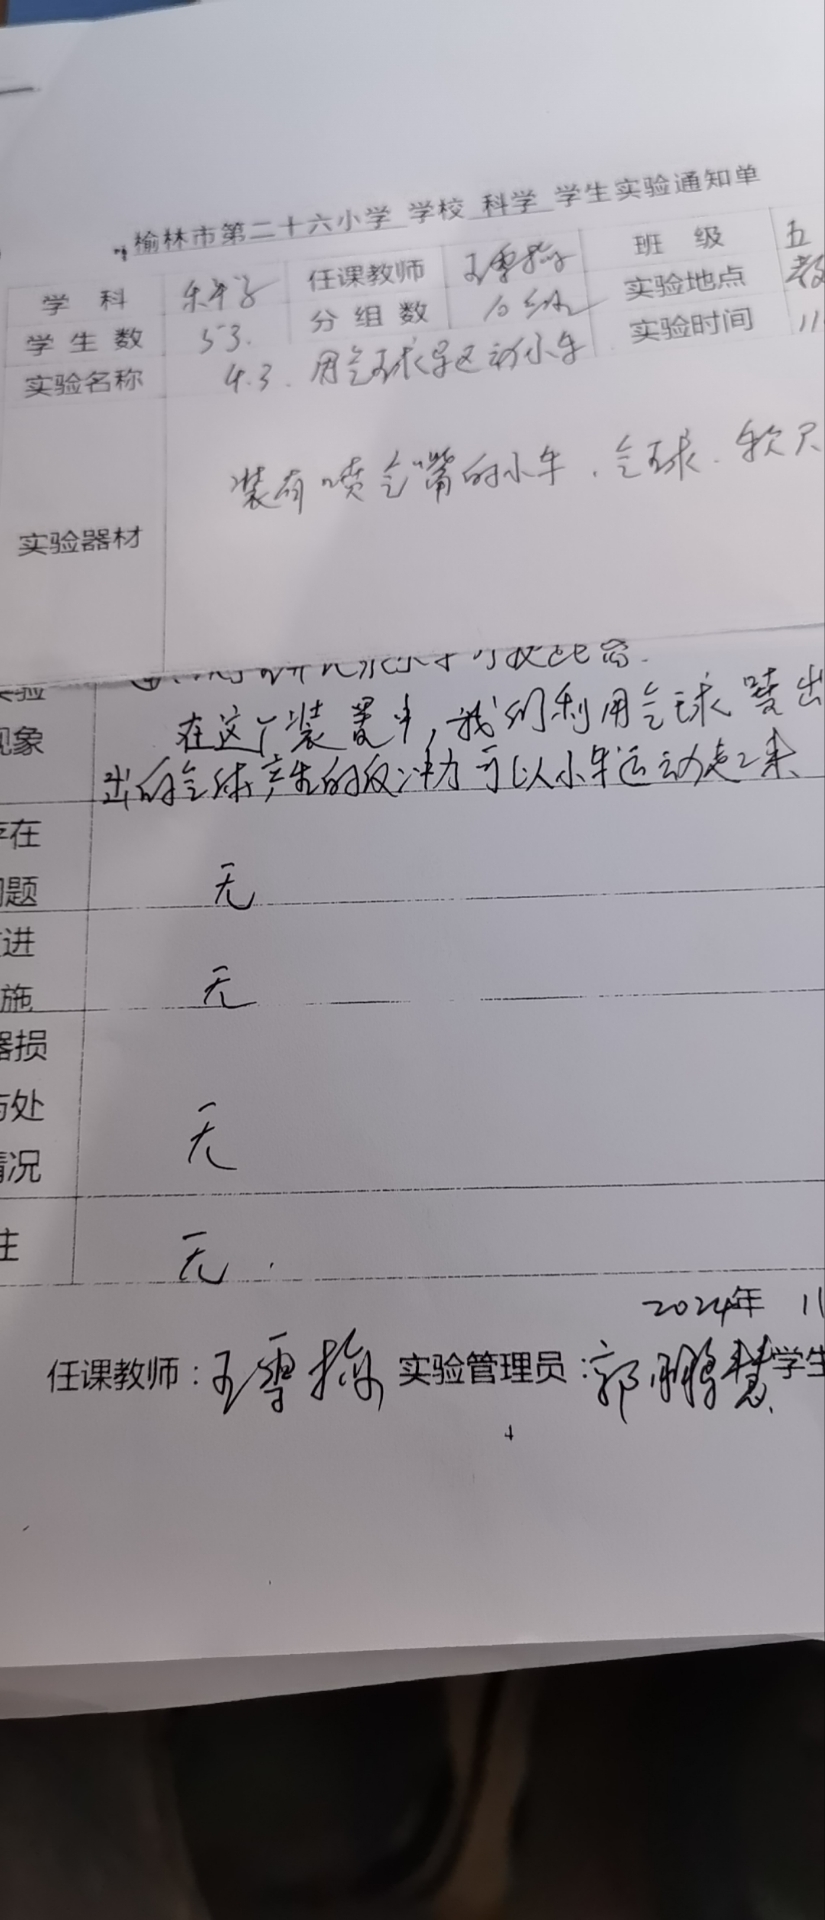 榆林市第二十六小学 学校 科学 学生实验通知单
学科 科学 任课教师 王雪梅 班级 五
学生数 53. 分组数 10组 实验地点 教
实验名称 4.3. 用气球驱动小车 实验时间 11
实验器材 装有喷气嘴的小车、气球、软尺
实验
现象 在这个装置中,我们利用气球喷出
出的气体产生的反冲力可以小车运动起来
存在
问题 无
改进
施 无
器损
与处
情况 无
注 无.
2024年 11
任课教师:王雪梅 实验管理员:郭鹏慧 学生